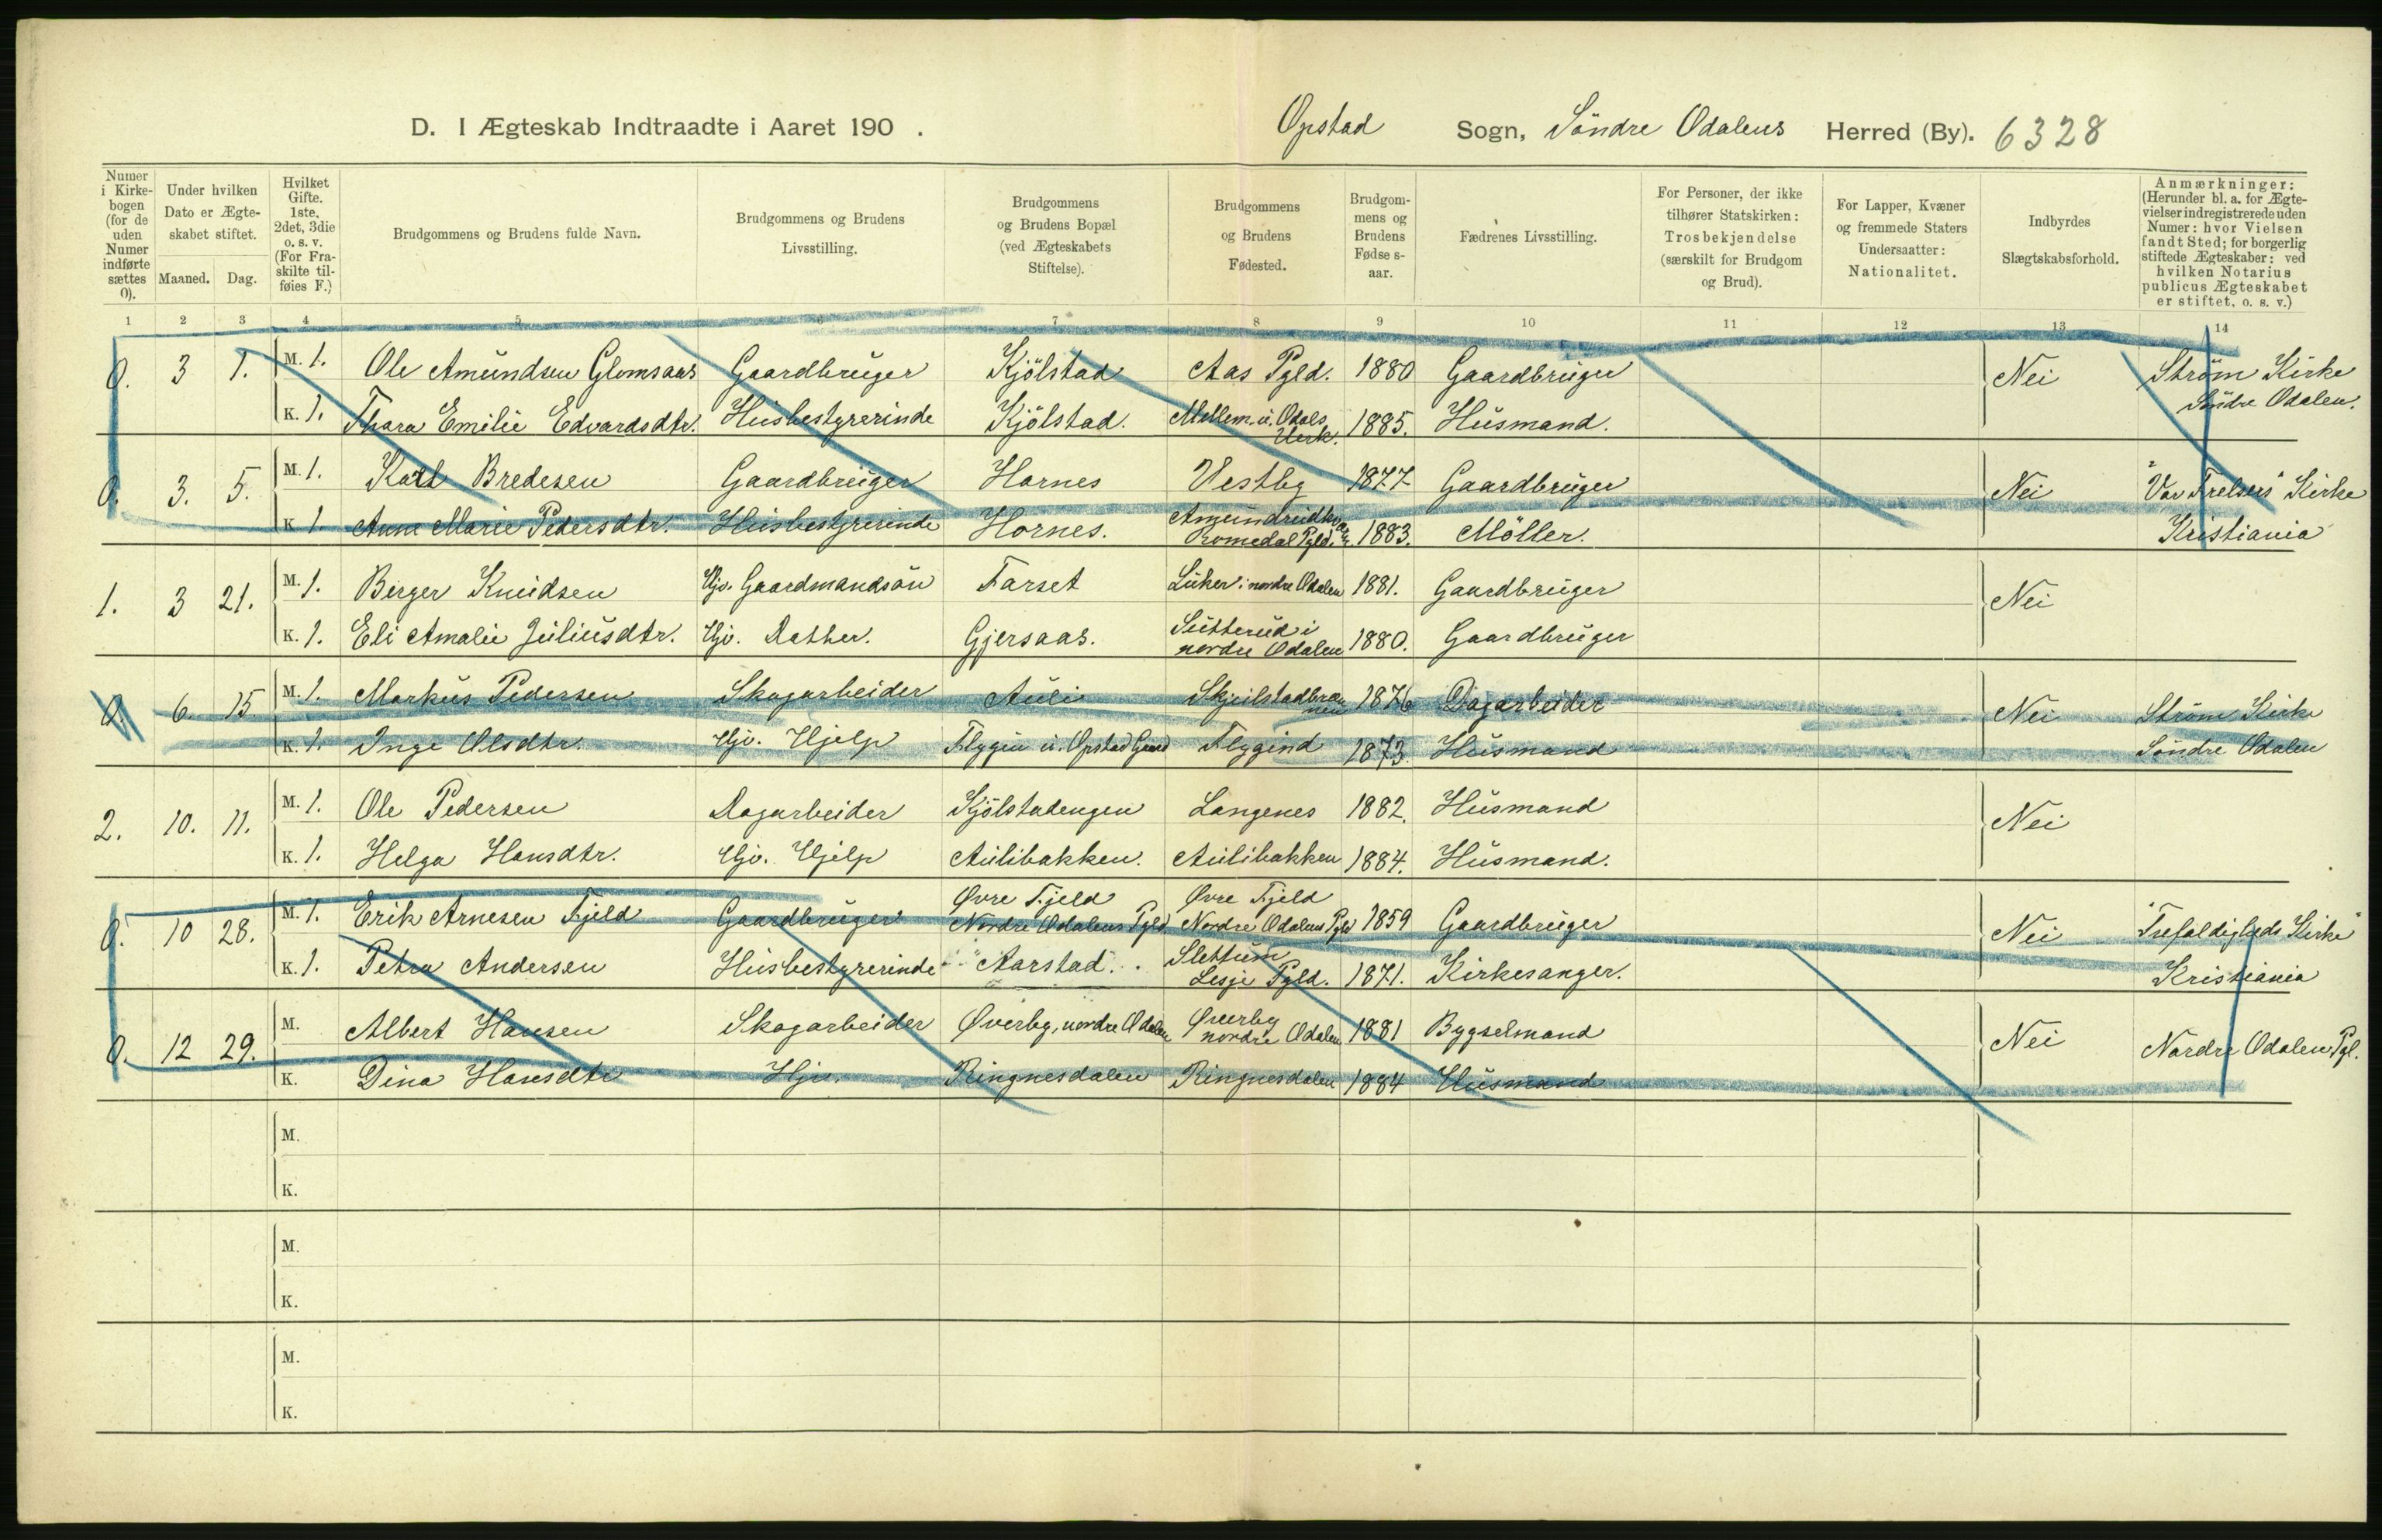 D. I Ægteskab Indtraadte i Aaret 190 .
Opstad Sogn, Söndre Odalens Herred (By). 6328
Numer i Kirke-bogen (for de uden Numer indførte sættes 0).
Under hvilken Dato er Ægte-skabet stiftet.
Maaned. Dag.
Hvilket Gifte. 1ste, 2det, 3die o. s. v. (For Fra-skilte til-føies F.)
Brudgommens og Brudens fulde Navn.
Brudgommens og Brudens Livsstilling.
Brudgommens og Brudens Bopæl (ved Ægteskabets Stiftelse).
Brudgommens og Brudens Fødested.
Brudgom-mens og Brudens Fødse s-aar.
Fædrenes Livsstilling.
For Personer, der ikke tilhører Statskirken: Trosbekjendelse (særskilt for Brudgom og Brud).
For Lapper, Kvæner og fremmede Staters Undersaatter: Nationalitet.
Indbyrdes Slægtskabsforhold.
Anmærkninger: (Herunder bl. a. for Ægte-vielser indregistrerede uden Numer: hvor Vielsen fandt Sted; for borgerlig stiftede Ægteskaber: ved hvilken Notarius publicus Ægteskabet er stiftet, o. s. v.)
1 2 3 4 5 6 7 8 9 10 11 12 13 14
0. 3 1. M. 1. Ole Amundsen Glomsaas Gaardbruger Kjölstad Aas Pgld. 1880 Gaardbruger Nei Ström Kirke
K. 1. Thora Emilie Edvardsdtr. Husbestyrerinde Kjölstad. Mellem u. Odals Verk. 1885. Husmand. Söndre Odalen.
0. 3. 5. M. 1. Karl Bredesen Gaardbruger Hornes Vestby 1877 Gaardbruger Nei "Vor Frelsers" Kirke
K 1. Anne Marie Pedersdtr. Husbestyrerinde Hornes. Romedal Pgld. 1883. Möller. Kristiania
1. 3 21. M. 1. Berger Knudsen Hjv. Gaardmandsön Farset Luker i nordre Odalen 1881. Gaardbruger Nei
K. 1. Eli Amalie Juliusdtr. Hjv. Datter. Gjersaas. Sutterud i nordre Odalen 1880. Gaardbruger
0. 6. 15. M. 1. Markus Pedersen Skogarbeider Auli 1876 Dagarbeider Nei Ström Kirke
K. 1. Inge Olsdtr. Hjv. Hjelp Flygin u. Opstad Gaard Flygind 1873. Husmand Söndre Odalen
2. 10. 11. M. 1. Ole Pedersen Dagarbeider Kjölstadengen Langenes 1882. Husmand Nei
K. 1. Helga Hansdtr. Hjv. Hjelp Aulibakken. Aulibakken 1884. Husmand.
0. 10 28. M. 1. Erik Arnesen Fjeld Gaardbruger Øvre Fjeld Nordre Odalens Pgld. Øvre Fjeld Nordre Odalens Pgld 1859 Gaardbruger Nei "Trefoldigheds Kirke"
K. 1. Petra Andersen Husbestyrerinde Aarstad. Slettum Lesje Pgld. 1871. Kirkesanger. Kristiania
0. 12 29. M. Albert Hansen Skogarbeider Øverby, nordre Odalen Øverby nordre Odalen 1881 Bygselmand Nei Nordre Odalen Pgl.
K. Dina Hansdtr Hjv. Ringnesdalen Ringnesdalen 1884 Husmand
M.
K.
M.
K.
M.
K.